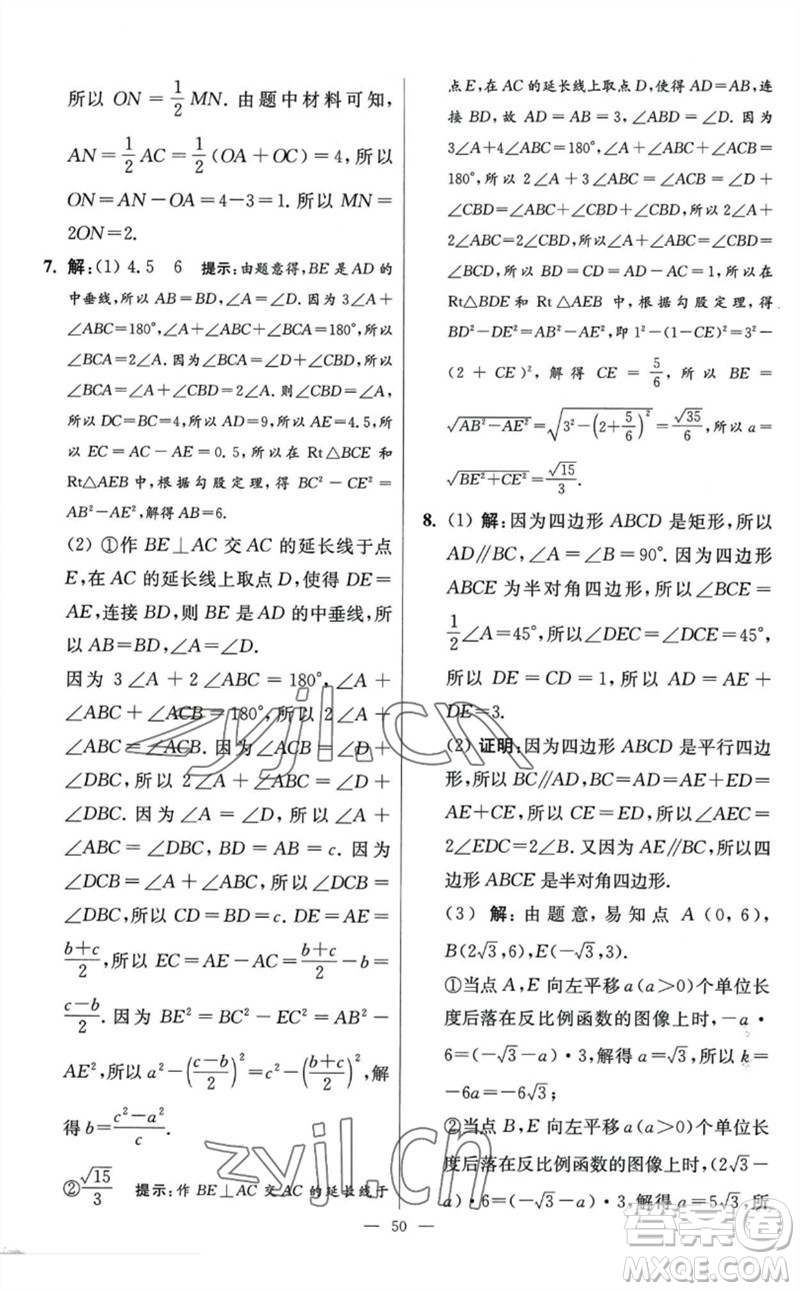 所以 ON = 1/2 MN. 由题中材料可知,
AN = 1/2 AC = 1/2 (OA + OC) = 4, 所以
ON = AN − OA = 4 − 3 = 1. 所以 MN =
2ON = 2.
7. 解: (1) 4.5 6 提示: 由题意得, BE 是 AD 的
中垂线, 所以 AB = BD, ∠A = ∠D. 因为 3∠A +
∠ABC = 180°, ∠A + ∠ABC + ∠BCA = 180°, 所以
∠BCA = 2∠A. 因为 ∠BCA = ∠D + ∠CBD, 所以
∠BCA = ∠A + ∠CBD = 2∠A. 则 ∠CBD = ∠A,
所以 DC = BC = 4, 所以 AD = 9, 所以 AE = 4.5, 所
以 EC = AC − AE = 0.5, 所以在 Rt△BCE 和
Rt△AEB 中, 根据勾股定理, 得 BC² − CE² =
AB² − AE², 解得 AB = 6.
(2) ①作 BE⊥AC 交 AC 的延长线于点
E, 在 AC 的延长线上取点 D, 使得 DE =
AE, 连接 BD, 则 BE 是 AD 的中垂线, 所
以 AB = BD, ∠A = ∠D.
因为 3∠A + 2∠ABC = 180°, ∠A +
∠ABC + ∠ACB = 180°, 所以 2∠A +
∠ABC = ∠ACB. 因为 ∠ACB = ∠D +
∠DBC, 所以 2∠A + ∠ABC = ∠D +
∠DBC. 因为 ∠A = ∠D, 所以 ∠A +
∠ABC = ∠DBC, BD = AB = c. 因为
∠DCB = ∠A + ∠ABC, 所以 ∠DCB =
∠DBC, 所以 CD = BD = c. 所以 DE = AE =
(b+c)/2, 所以 EC = AE − AC = (b+c)/2 − b =
(c−b)/2. 因为 BE² = BC² − EC² = AB² −
AE², 所以 a² − ((c−b)/2)² = c² − ((b+c)/2)², 解
得 b = (c²−a²)/c.
②√15/3 提示: 作 BE⊥AC 交 AC 的延长线于
点 E, 在 AC 的延长线上取点 D, 使得 AD = AB, 连
接 BD, 故 AD = AB = 3, ∠ABD = ∠D. 因为
3∠A + 4∠ABC = 180°, ∠A + ∠ABC + ∠ACB =
180°, 所以 2∠A + 3∠ABC = ∠ACB = ∠D +
∠CBD = ∠ABC + ∠CBD + ∠CBD, 所以 2∠A +
2∠ABC = 2∠CBD, 所以 ∠A + ∠ABC =
∠CBD = ∠BCD, 所以 BD = CD = 1. 所以在
Rt△BDE 和 Rt△AEB 中, 根据勾股定理, 得
BD² − DE² = AB² − AE², 即 1² − (1 − CE)² = 3² −
(2 + CE)², 解得 CE = 5/6, 所以 BE =
√(AB² − AE²) = √(3² − (2 + 5/6)²) = √35/6, 所以 a =
√(BE² + CE²) = √15/3.
8. (1) 解: 因为四边形 ABCD 是矩形, 所以
AD∥BC, ∠A = ∠B = 90°. 因为四边形
ABCE 为半对角四边形, 所以 ∠BCE =
1/2 ∠A = 45°, 所以 ∠DEC = ∠DCE = 45°,
所以 DE = CD = 1, 所以 AD = AE +
DE = 3.
(2) 证明: 因为四边形 ABCD 是平行四边
形, 所以 BC∥AD, BC = AD = AE + ED =
AE + CE, 所以 CE = ED, 所以 ∠AEC =
2∠EDC = 2∠B. 又因为 AE∥BC, 所以四
边形 ABCE 是半对角四边形.
(3) 解: 由题意, 易知点 A(0, 6),
B(2√3, 6), E(−√3, 3).
①当点 A, E 向左平移 a(a>0)个单位长
度后落在反比例函数的图像上时, −a ·
6 = (−√3 − a) · 3, 解得 a = √3, 所以 k =
−6a = −6√3;
②当点 B, E 向左平移 a(a>0)个单位长
度后落在反比例函数的图像上时, (2√3 −
a) · 6 = (−√3 − a) · 3, 解得 a = 5√3, 所
— 50 —
zyjl.cn
zyjl.cn
答案圈
MXQE.COM